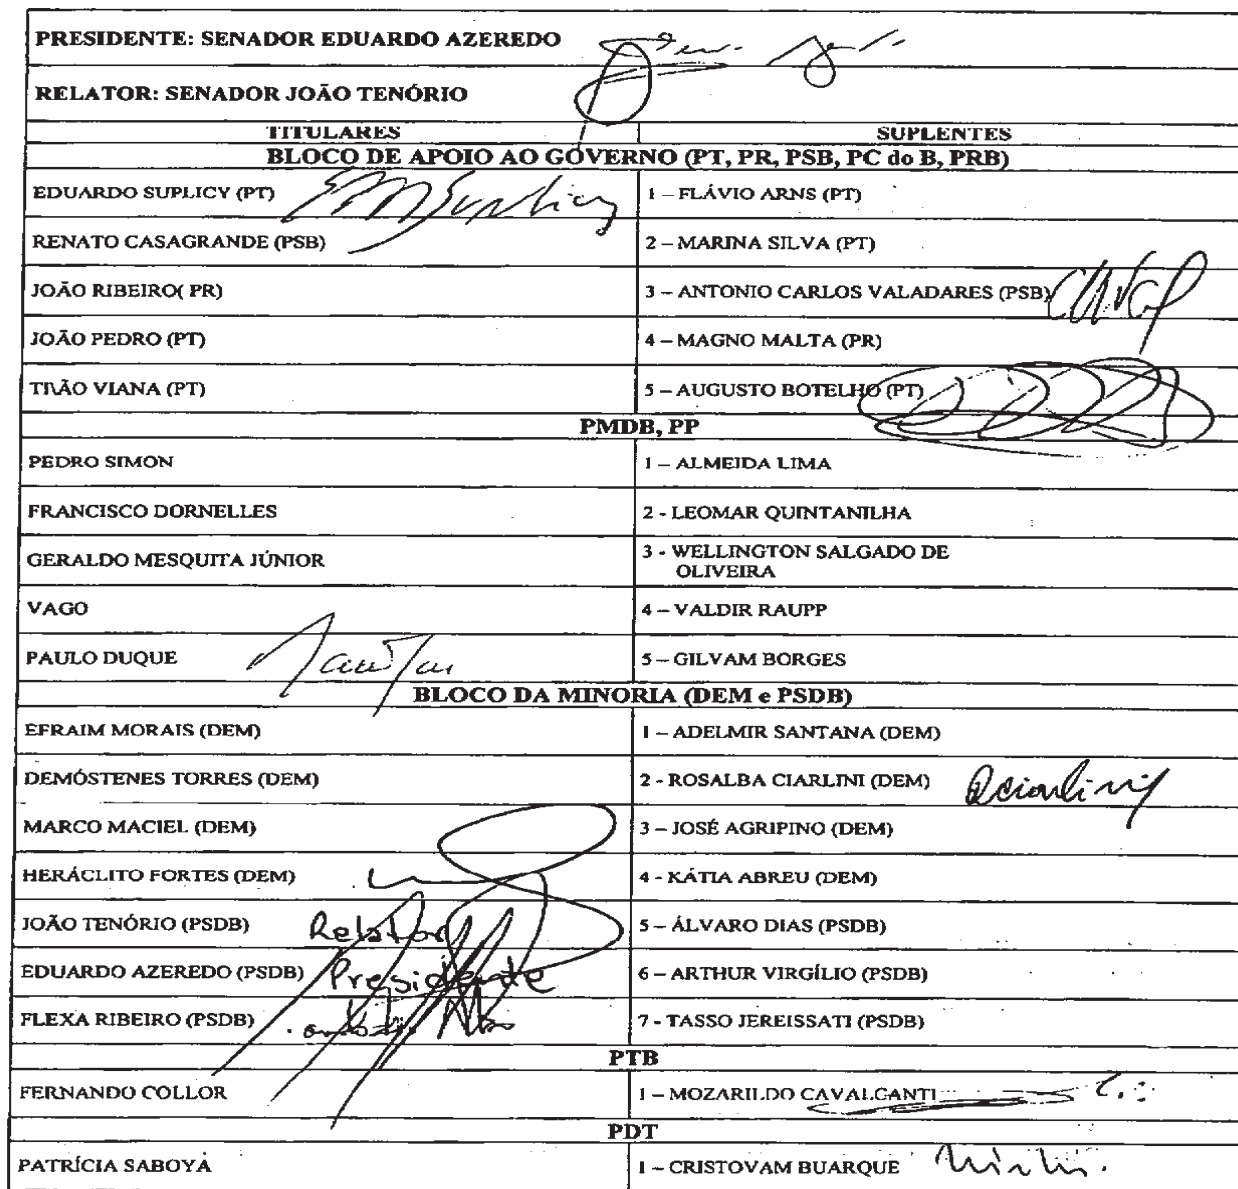 PRESIDENTE: SENADOR EDUARDO AZEREDO
RELATOR: SENADOR JOÃO TENÓRIO
TITULARES SUPLENTES
BLOCO DE APOIO AO GOVERNO (PT, PR, PSB, PC do B, PRB)
EDUARDO SUPLICY (PT) Suplicy 1 – FLÁVIO ARNS (PT)
RENATO CASAGRANDE (PSB) 2 – MARINA SILVA (PT)
JOÃO RIBEIRO( PR) 3 – ANTONIO CARLOS VALADARES (PSB)
JOÃO PEDRO (PT) 4 – MAGNO MALTA (PR)
TIÃO VIANA (PT) 5 – AUGUSTO BOTELHO (PT)
PMDB, PP
PEDRO SIMON 1 – ALMEIDA LIMA
FRANCISCO DORNELLES 2 - LEOMAR QUINTANILHA
GERALDO MESQUITA JÚNIOR 3 - WELLINGTON SALGADO DE
OLIVEIRA
VAGO 4 – VALDIR RAUPP
PAULO DUQUE 5 – GILVAM BORGES
BLOCO DA MINORIA (DEM e PSDB)
EFRAIM MORAIS (DEM) 1 – ADELMIR SANTANA (DEM)
DEMÓSTENES TORRES (DEM) 2 - ROSALBA CIARLINI (DEM) Rciarlini
MARCO MACIEL (DEM) 3 – JOSÉ AGRIPINO (DEM)
HERÁCLITO FORTES (DEM) 4 - KÁTIA ABREU (DEM)
JOÃO TENÓRIO (PSDB) Relator 5 – ÁLVARO DIAS (PSDB)
EDUARDO AZEREDO (PSDB) Presidente 6 – ARTHUR VIRGÍLIO (PSDB)
FLEXA RIBEIRO (PSDB) 7 - TASSO JEREISSATI (PSDB)
PTB
FERNANDO COLLOR 1 – MOZARILDO CAVALCANTI
PDT
PATRÍCIA SABOYA 1 – CRISTOVAM BUARQUE